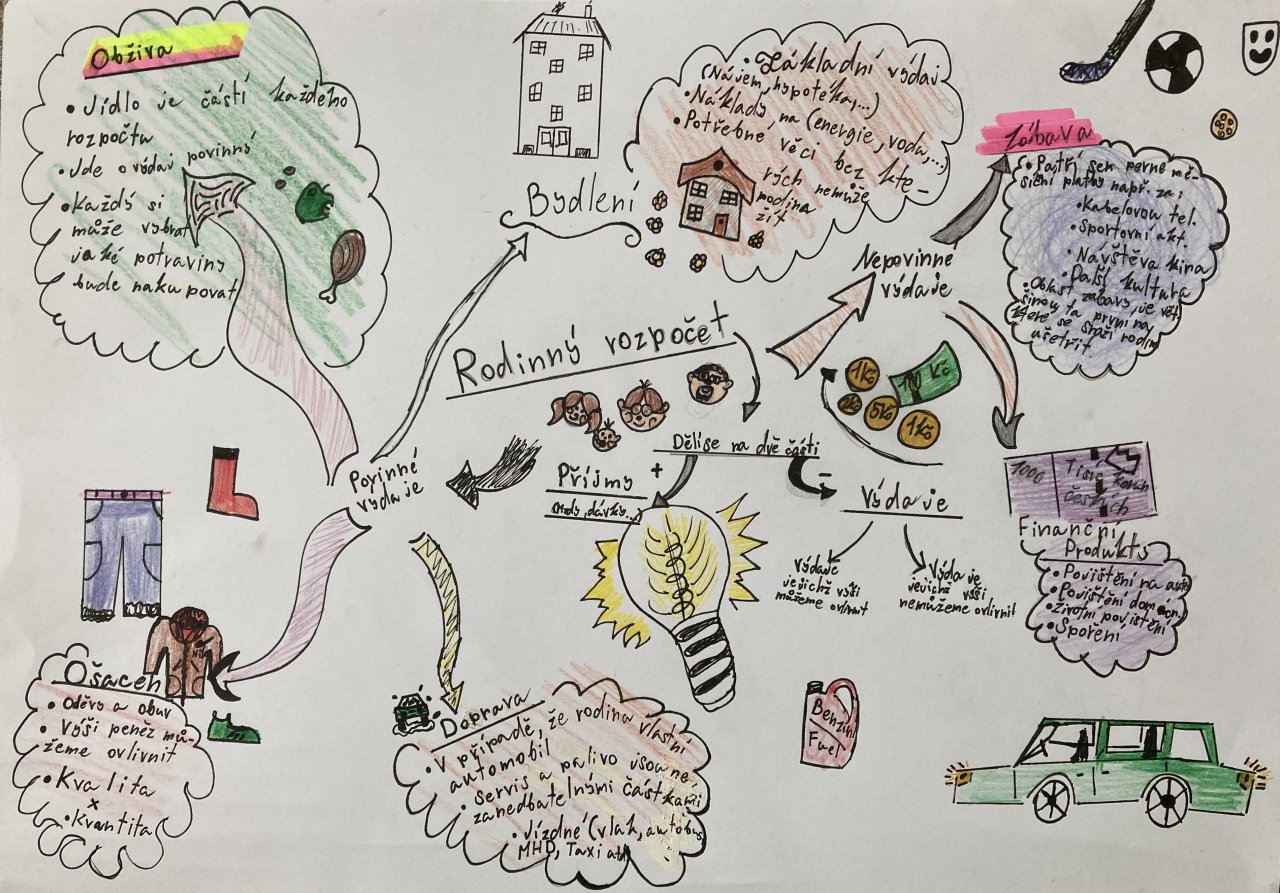 Obživa
• Jídlo je částí každého
rozpočtu
• Jde o výdaj povinný
• Každý si
může vybrat
jaké potraviny
bude nakupovat
Bydlení
• Základní výdaj
(Nájem, hypotéka,...)
• Náklady na (energie, vodu,...)
• Potřebné věci bez kte-
rých nemůže
rodina
žít
Zábava
• Patří sem pevné mě-
síční platby např. za:
• Kabelovou tel.
• Sportovní akt.
• Návštěva kina
• Další kultura
• Oblast zábavy je vět
šinou ta první na
které se snaží rodin
ušetřit
Nepovinné
výdaje
Rodinný rozpočet
1 Kč
100 Kč
2Kč
5Kč
1Kč
Dělíse na dvě části
Povinné
výdaje
+
-
Příjmy
(Mzdy, dávky...)
Výdaje
Výdaje
jejichž výši
můžeme ovlivnit
Výdaje
jejichž výši
nemůžeme ovlivnit
1000
Tisíc
Korun
českých
Finanční
Produkty
• Pojištění na auto
• Pojištění domácn.
• Životní pojištění
• Spoření
Ošacení
• Oděvy a obuv
• Výši peněz mů-
žeme ovlivnit
• Kvalita
x
• Kvantita
Doprava
• V případě, že rodina vlastní
automobil
• servis a palivo jsou ne
zanedbatelnými částkami
• Jízdné (vlak, autobus
MHD, Taxi atd)
Benzín
Fuel